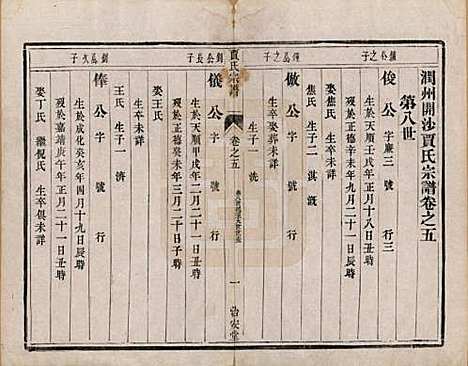 潤州開沙賈氏宗譜卷之五
第八世
俊公 字廉三 號 行三
生於天順年月十八日丑時
歿於正德辛未年月二十一日丑時
娶焦氏 生卒未詳
焦氏 生子二 淇 溉
公之子
傲公 字 號 行
生卒未詳
生子一 洗
賈氏宗譜
卷之五
一
治安堂
儀公 字 號 行
生於天順甲戌年二月二十一日時
歿於正德辛未年三月二十日子時
娶王氏 生卒未詳
王氏 生子一 濟
釗公長子
俸公 字 號 行
生於成化癸亥年四月十九日辰時
歿於嘉靖庚午年正月二十一日丑時
娶丁氏 繼倪氏 生卒俱未詳
釗公次子